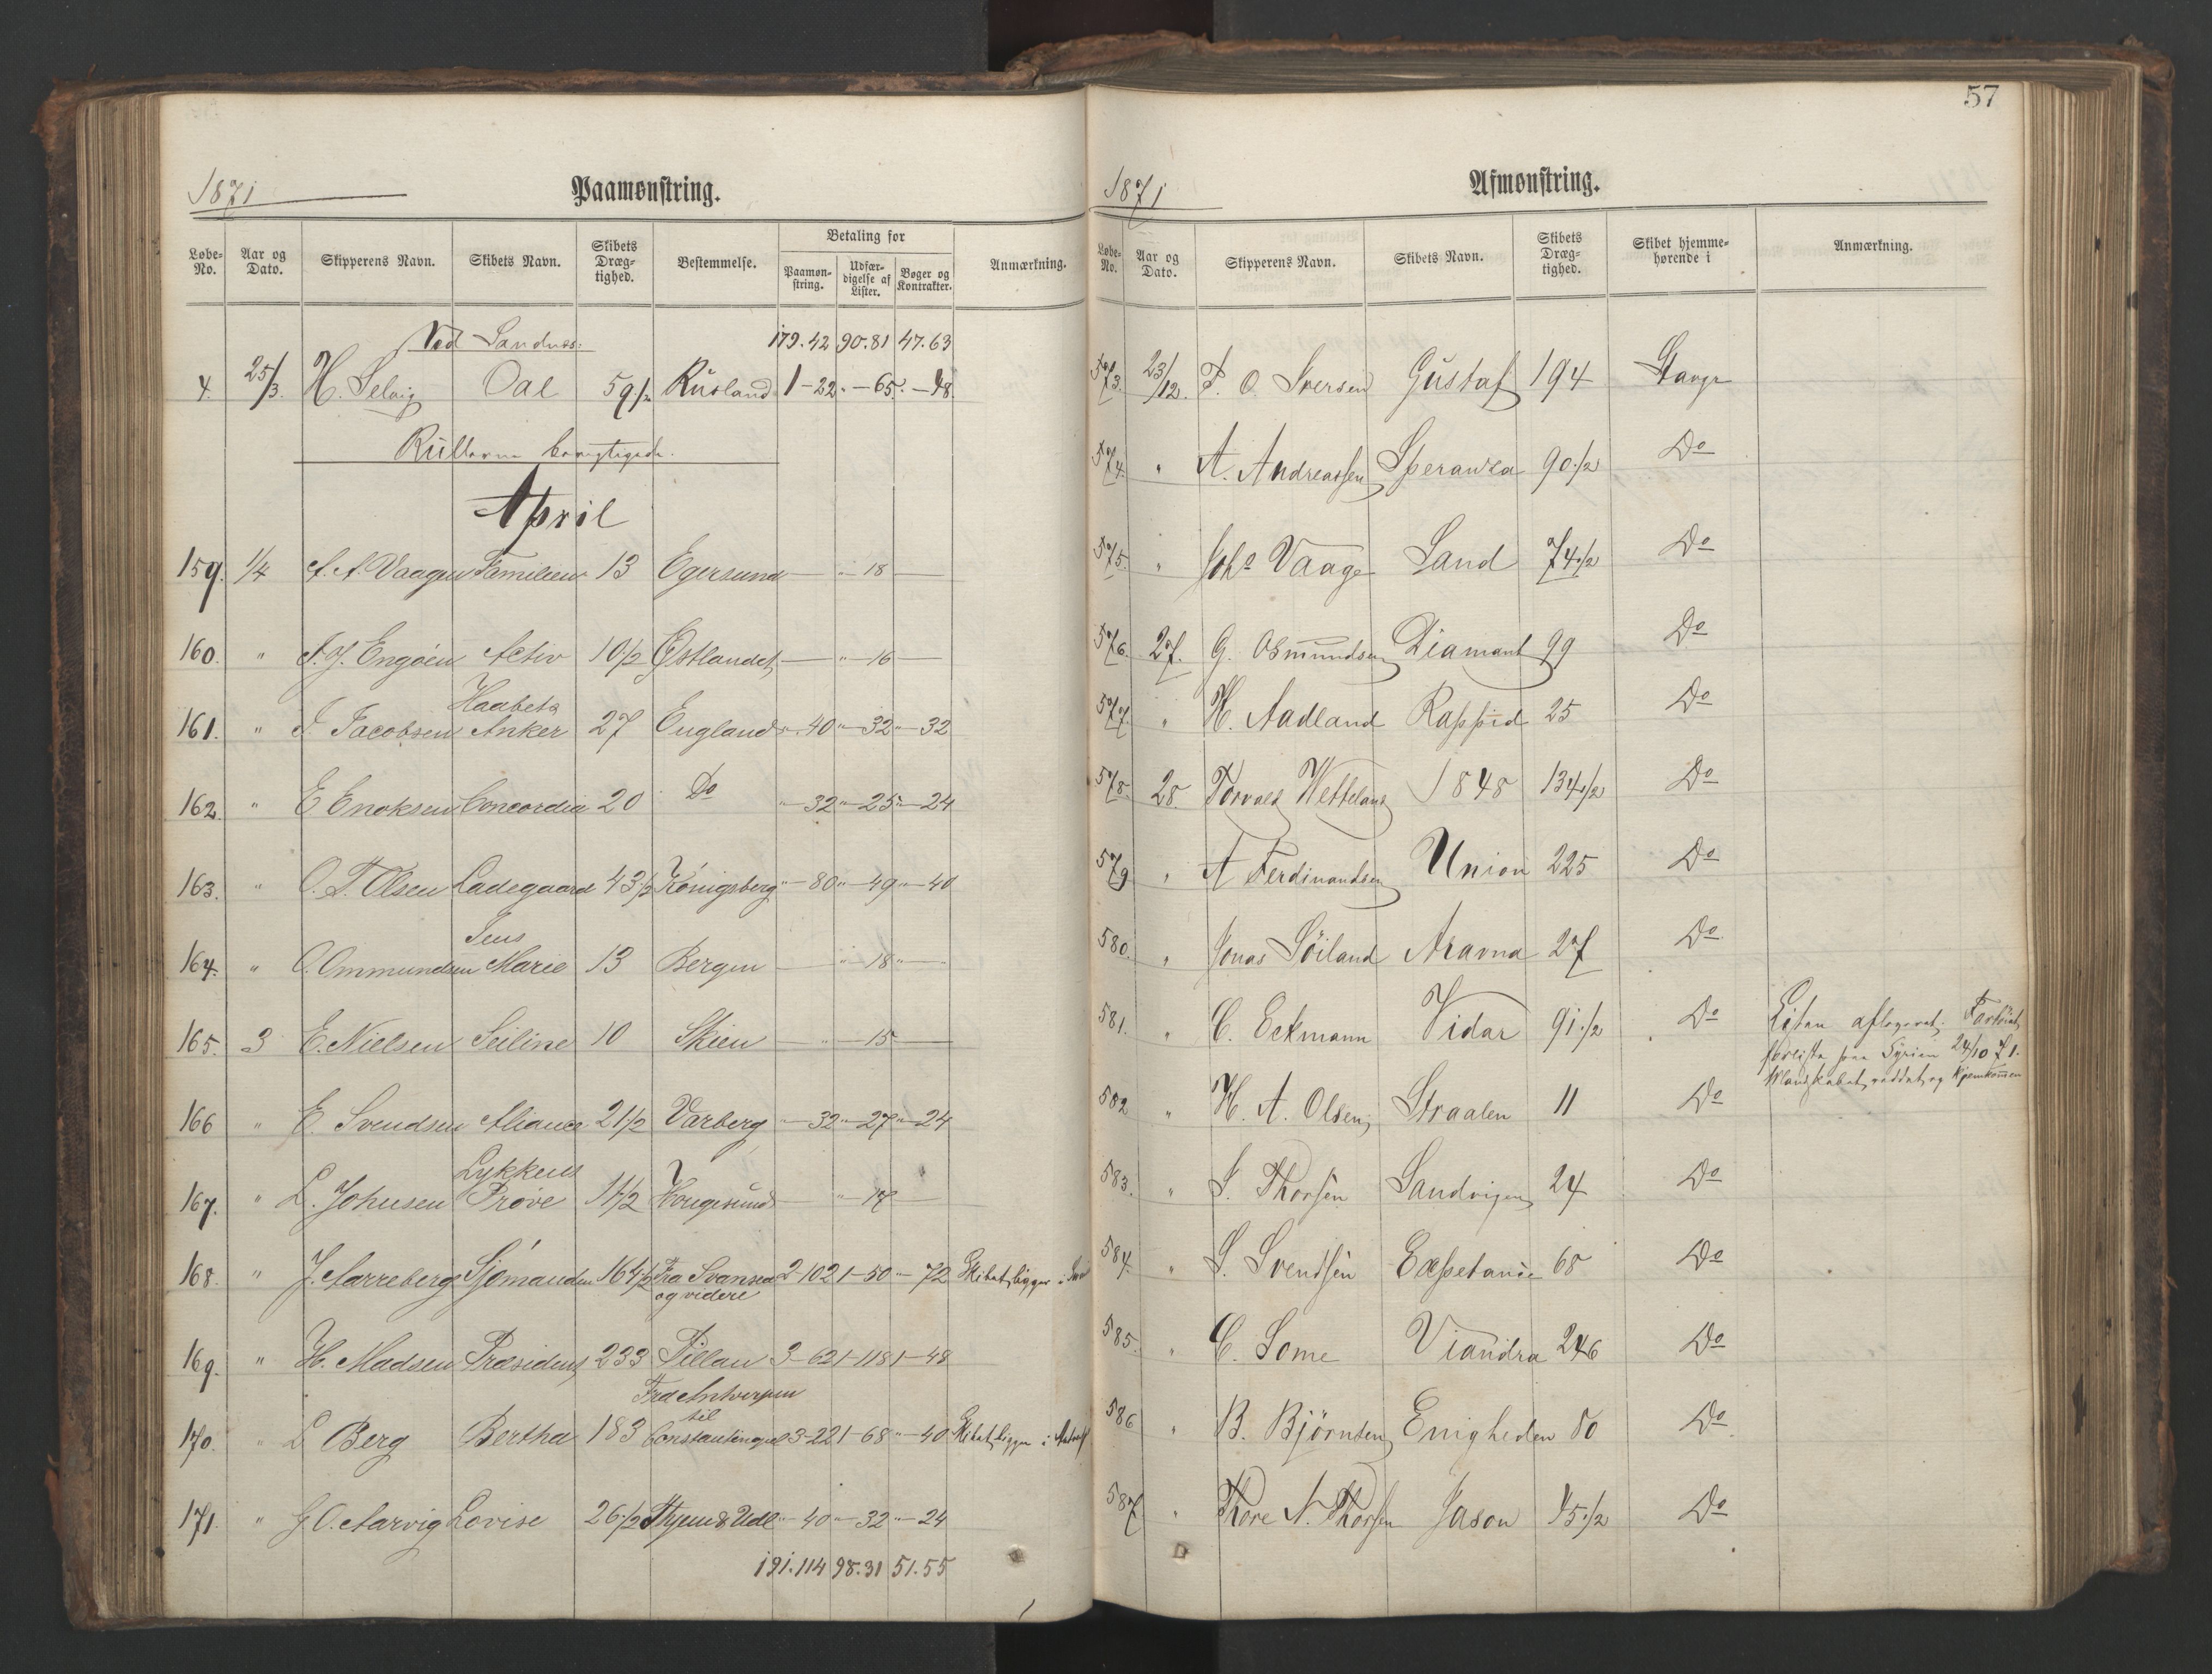 1871
Paamønstring.
Løbe-No. Aar og Dato. Skipperens Navn. Skibets Navn. Skibets Drægtighed. Bestemmelse. Betaling for Paamønstring. Udfærdigelse af Lister. Bøger og Kontrakter. Anmærkning.
Ved Sandnæs. 179.42 90.81 47.63
4. 25/3. H. Selvig Oal 59 1/2 Rusland 1-22 "-65 "-48
Rullerne berigtigede.
April
159. 1/4 A. A. Vaagen Familien 13 Egersund — "-18 —
160. " Engøen Activ 10 1/2 Østlandet — "-16 —
161. " J. Jacobsen Haabets Anker 27 England "-40 "-32 "-32
162. " E Enoksen Concordia 20 Do "-32 "-25 "-24
163. " O. T. Olsen Ladegaard 43 1/2 Königsberg "-80 "-49 "-40
164. " O. Ommundsen Jens Marie 13 Bergen — "-18 —
165. 3 E. Nielsen Seiline 10 Skien — "-15 —
166 " E. Svendsen Aliance 21 1/2 Varberg "-32 "-27 "-24
167. " L. Johnsen Lykkens Prøve 11 1/2 — "-17 —
168. " J. Aarreberg Sjømanden 164 1/2 Fra Svansea og videre 2-102 1-50 "-72 Skibet ligger i
169. " H. Madsen Præsident 233 Pillau 3-62 1-118 1-48
170. " L Berg Bertha 183 Fra Antverpen til Constantinopel 3-22 1-68 "-40 Skibet ligger i
171. " J. O. Aarvig Lovise 26 1/2 "-40 "-32 "-24
191.114 98.31 51.55
57
1871
Afmønstring.
Løbe-No. Aar og Dato. Skipperens Navn. Skibets Navn. Skibets Drægtighed. Skibet hjemmehørende i Anmærkning.
573. 23/12. T. O. Iversen Gustaf 194 Stavgr
574. " A. Andreassen Speranza 90 1/2 Do
575. " Johs Vaage Sand 74 1/2 Do
576. 27. G. Osmundsen Diamant 99 Do
577. " H. Aadland Rappid 25 Do
578. 28. Torvald Wetteland 1848 134 1/2 Do
579 " A Ferdinandsen Union 225 Do
580. " Jonas Söiland Aravna 27 Do
581. " C. Eckmann Vidar 91 1/2 Do Listen aflegeret. Fartöiet
forliste paa Syrien 24/10 71.
Mandskabet reddet og hjemkommen
582 " H. A. Olsen Straalen 11 Do
583. " S. Thorsen Sandvigen 24 Do
584. " S. Svendsen Exspetance 68 Do
585. " C. Some Viandra 246 Do
586 " B. Björnsen Enigheden 80 Do
587 " Thore N. Thorsen Jason 45 1/2 Do